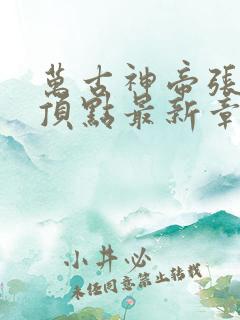 萬古神帝張
頂點最新章
小井必
未经同意禁止转载